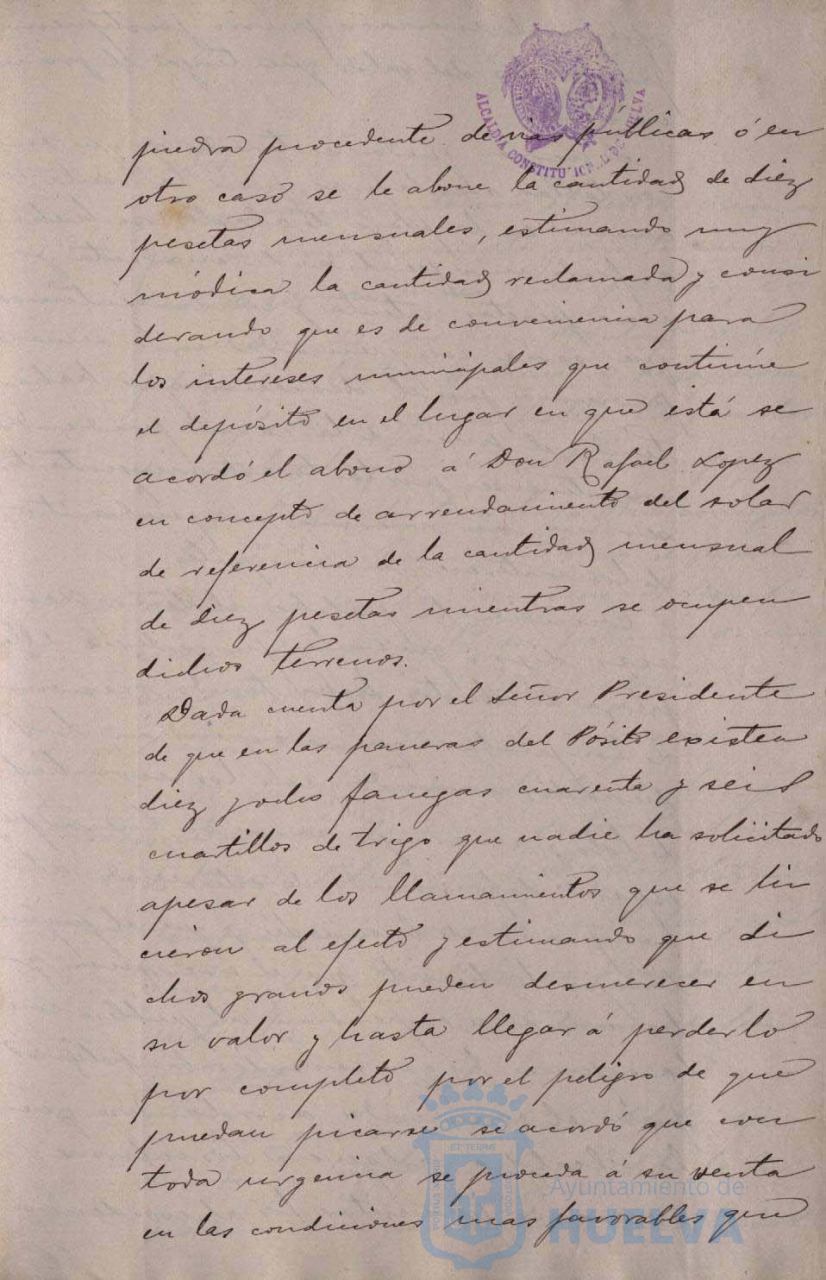 ALCALDÍA CONSTITU IONAL DE HUELVA
piedra procedente de vias públicas ó en
otro caso se le abone la cantidad de diez
pesetas mensuales, estimando muy
módica la cantidad reclamada y consi
derando que es de conveniencia para
los intereses municipales que continúe
el depósito en el lugar en que está se
acordó el abono á Don Rafael Lopez
en concepto de arrendamiento del solar
de referencia de la cantidad mensual
de diez pesetas mientras se ocupen
dichos terrenos.
Dada cuenta por el Señor Presidente
de que en las paneras del Pósito existen
diez y ocho fanegas cuarenta y seis
cuartillos de trigo que nadie ha solicitado
apesar de los llamamientos que se hi
cieron al efecto y estimando que di
chos granos pueden desmerecer en
su valor y hasta llegar á perderlo
por completo por el peligro de que
puedan picarse se acordó que con
toda urgencia se proceda á su venta
en las condiciones mas favorables que
Ayuntamiento de
HUELVA